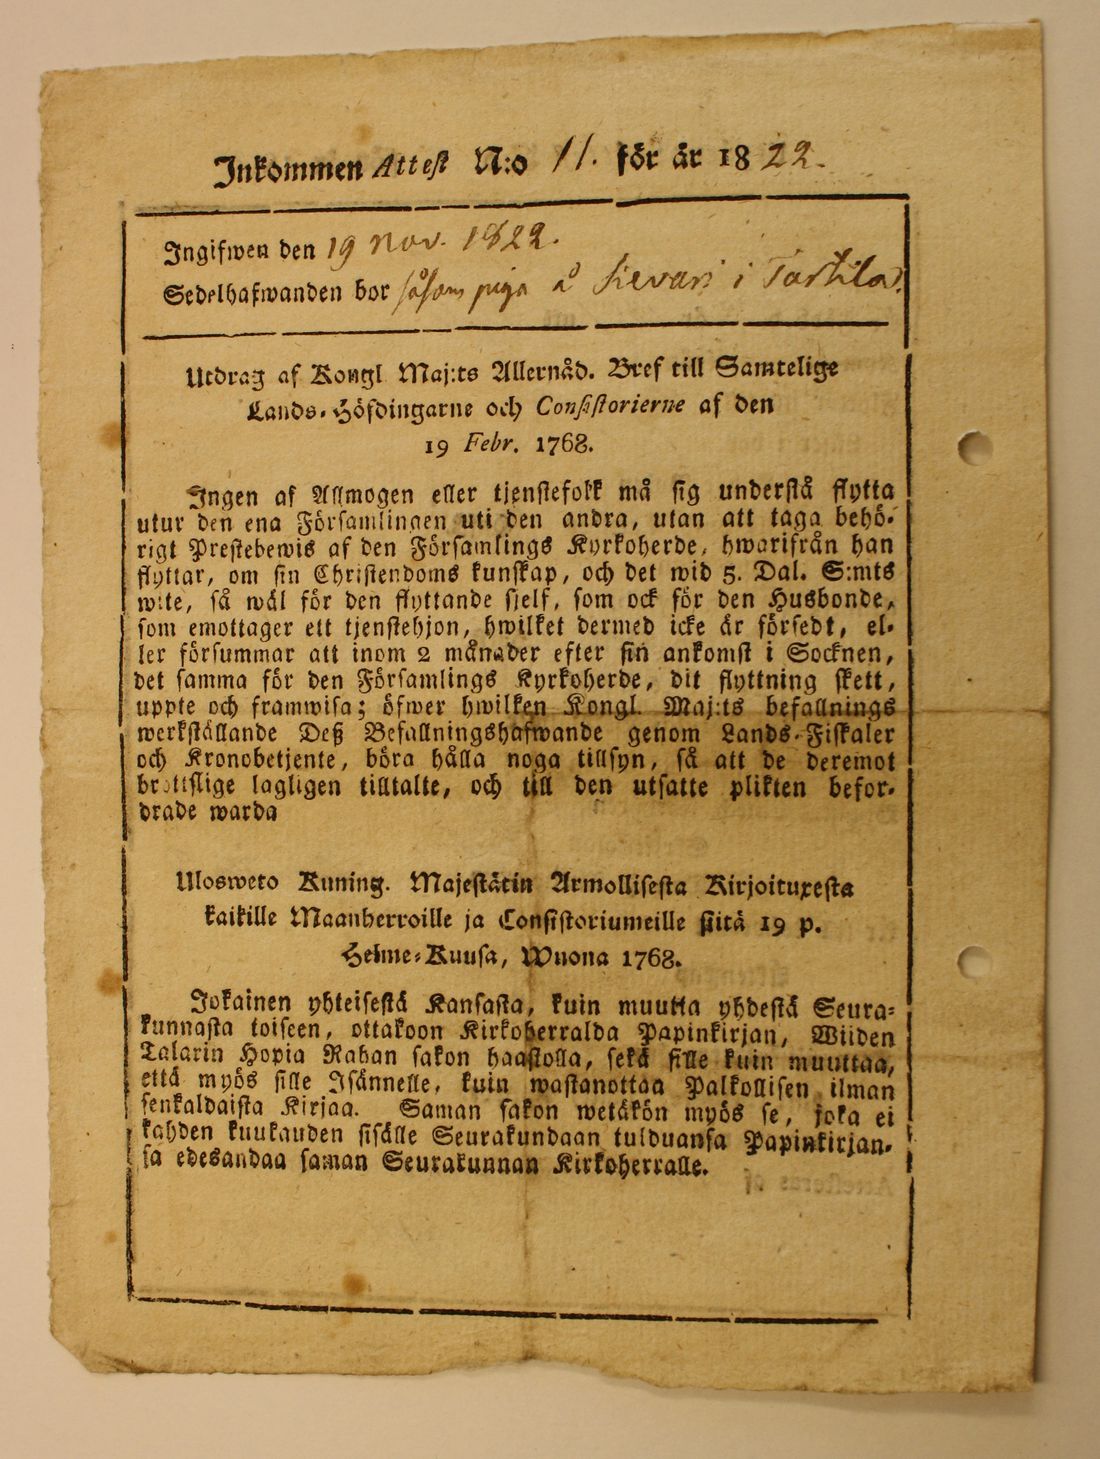 Inkommen Attest N:o 11. för år 1822.
Ingifwen den 19 Nov. 1822.
Sedelhafwanden bor såsom piga å Sievari i Tartila.
Utdrag af Kongl Maj:ts Allernåd. Bref till Samtelige
Lands-Höfdingarne och Consistorierne af den
19 Febr. 1768.
Ingen af Allmogen eller tjenstefolk må sig understå flytta
utur den ena Församlingen uti den andra, utan att taga behö-
rigt Prestebewis af den Församlings Kyrkoherde, hwarifrån han
flyttar, om sin Christendoms kunskap, och det wid 5. Dal. S:mts
wite, så wäl för den flyttande sjelf, som ock för den Husbonde,
som emottager ett tjenstehjon, hwilket dermed icke är försedt, el-
ler försummar att inom 2 månader efter sin ankomst i Socknen,
det samma för den Församlings Kyrkoherde, dit flyttning skett,
uppte och framwisa; öfwer hwilken Kongl. Maj:ts befallnings
werkställande Deß Befallningshafwande genom Lands-Fiskaler
och Kronobetjente, böra hålla noga tillsyn, så att de deremot
brottslige lagligen tilltalte, och till den utsatte plikten befor-
drade warda
Ulosweto Kuning. Majestätin Armollisesta Kirjoituxesta
kaikille Maanherroille ja Consistoriumeille siitä 19 p.
Helme-Kuusa, Wuona 1768.
Jokainen yhteisestä Kansasta, kuin muutta yhdestä Seura-
kunnasta toiseen, ottakoon Kirkoherralda Papinkirjan, Wiiden
Talarin Hopia Rahan sakon haastolla, sekä sille kuin muuttaa,
että myös sille Isännelle, kuin wastanottaa Palkollisen ilman
senkaldaista Kirjaa. Saman sakon wetäkön myös se, joka ei
kahden kuukauden sisälle Seurakundaan tulduansa Papinkirjan-
sa edesandaa saman Seurakunnan Kirkoherralle.